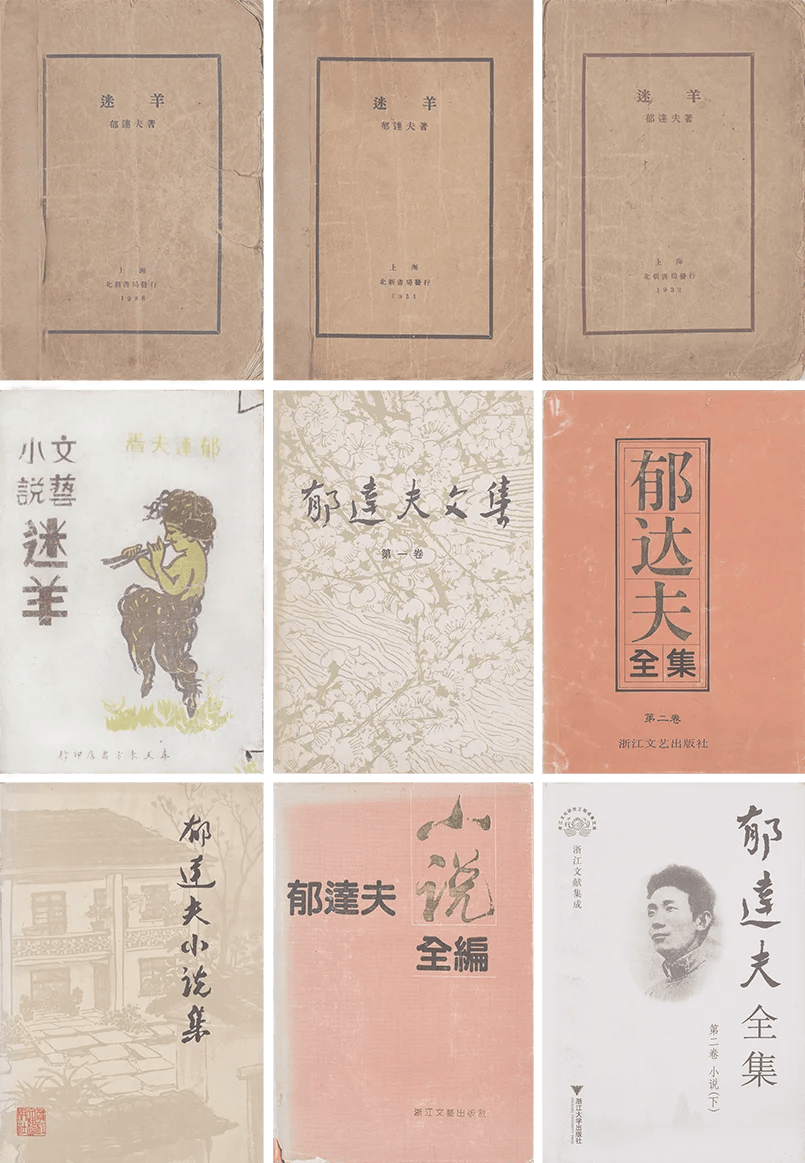 迷羊
郁達夫著
上海
北新書局發行
1928
迷羊
郁達夫著
上海
北新書局發行
1931
迷羊
郁達夫著
上海
北新書局發行
1932
郁達夫著
文藝
小説
迷羊
郁達夫文集
第一卷
郁达夫
全集
第二卷
浙江文艺出版社
郁達夫小说集
小说
郁達夫
全編
浙江文藝出版社
浙江文献集成
郁達夫全集
第二卷 小说(下)
浙江大学出版社